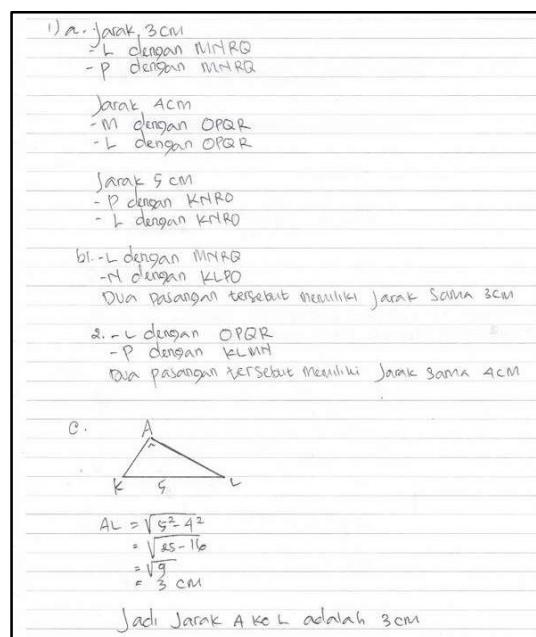 1) a. Jarak 3 cm
- L dengan MNRQ
- P dengan MNRQ
Jarak 4 cm
- M dengan OPQR
- L dengan OPQR
Jarak 5 cm
- P dengan KNRO
- L dengan KNRO
b1. - L dengan MNRQ
- N dengan KLPO
Dua pasangan tersebut memiliki jarak sama 3 cm
2. - L dengan OPQR
- P dengan KLMN
Dua pasangan tersebut memiliki jarak sama 4 cm
C.
A
K 5 L
AL = √5² - 4²
= √25 - 16
= √9
= 3 cm
Jadi Jarak A ke L adalah 3 cm